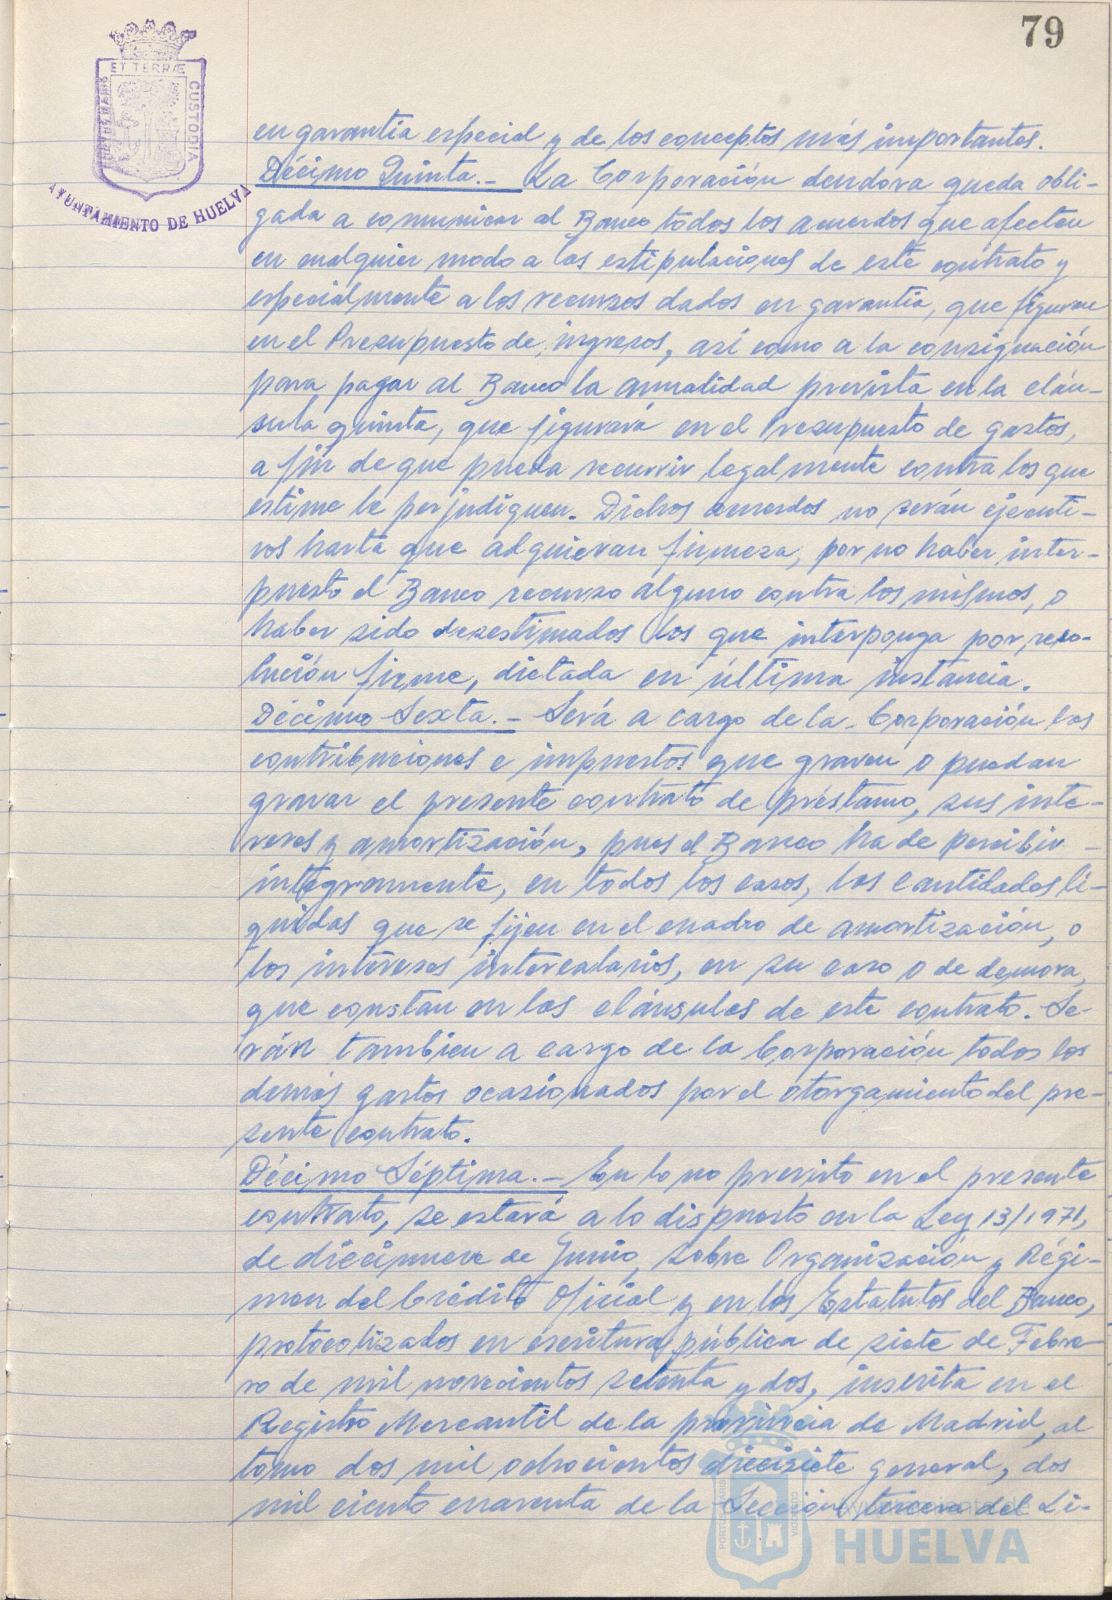 79
ET TERRÆ
CUSTODIA
AYUNTAMIENTO DE HUELVA
en garantía especial y de los conceptos más importantes.
Décimo Quinta.- La Corporación deudora queda obli-
gada a comunicar al Banco todos los acuerdos que afecten
en cualquier modo a las estipulaciones de este contrato y
especialmente a los recursos dados en garantía, que figuran
en el Presupuesto de ingresos, así como a la consignación
para pagar al Banco la anualidad prevista en la cláu-
sula quinta, que figurará en el Presupuesto de gastos,
a fin de que pueda recurrir legalmente contra los que
estime le perjudiquen. Dichos acuerdos no serán ejecuti-
vos hasta que adquieran firmeza, por no haber inter-
puesto el Banco recurso alguno contra los mismos, o
haber sido desestimados los que interponga por reso-
lución firme, dictada en última instancia.
Décimo Sexta.- Será a cargo de la Corporación las
contribuciones e impuestos que graven o puedan
gravar el presente contrato de préstamo, sus inte-
reses y amortización, pues el Banco ha de percibir -
íntegramente, en todos los casos, las cantidades lí-
quidas que se fijen en el cuadro de amortización, o
los intereses intercalarios, en su caso o de demora,
que constan en las cláusulas de este contrato. Se-
rán tambien a cargo de la Corporación todos los
demás gastos ocasionados por el otorgamiento del pre-
sente contrato.
Décimo Séptima.- En lo no previsto en el presente
contrato, se estará a lo dispuesto en la Ley 13/1971,
de diecinueve de Junio, sobre Organización y Régi-
men del Crédito Oficial y en los Estatutos del Banco,
protocolizados en escritura pública de siete de Febre-
ro de mil novecientos setenta y dos, inscrita en el
Registro Mercantil de la provincia de Madrid, al
tomo dos mil ochocientos diecisiete general, dos
mil ciento cuarenta de la Sección tercera del Li-
HUELVA